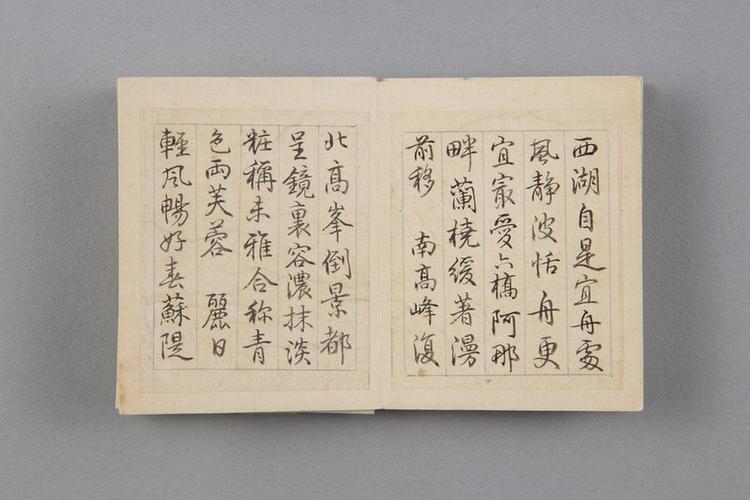 西湖自是宜舟處
風静波恬舟更
宜寂愛六橋阿那
畔蘭橈緩著漫
前移　南高峰復
北高峯倒景都
呈鏡裏容濃抹淡
粧稱未雅合称青
色兩芙蓉　麗日
輕风暢好春蘇隄